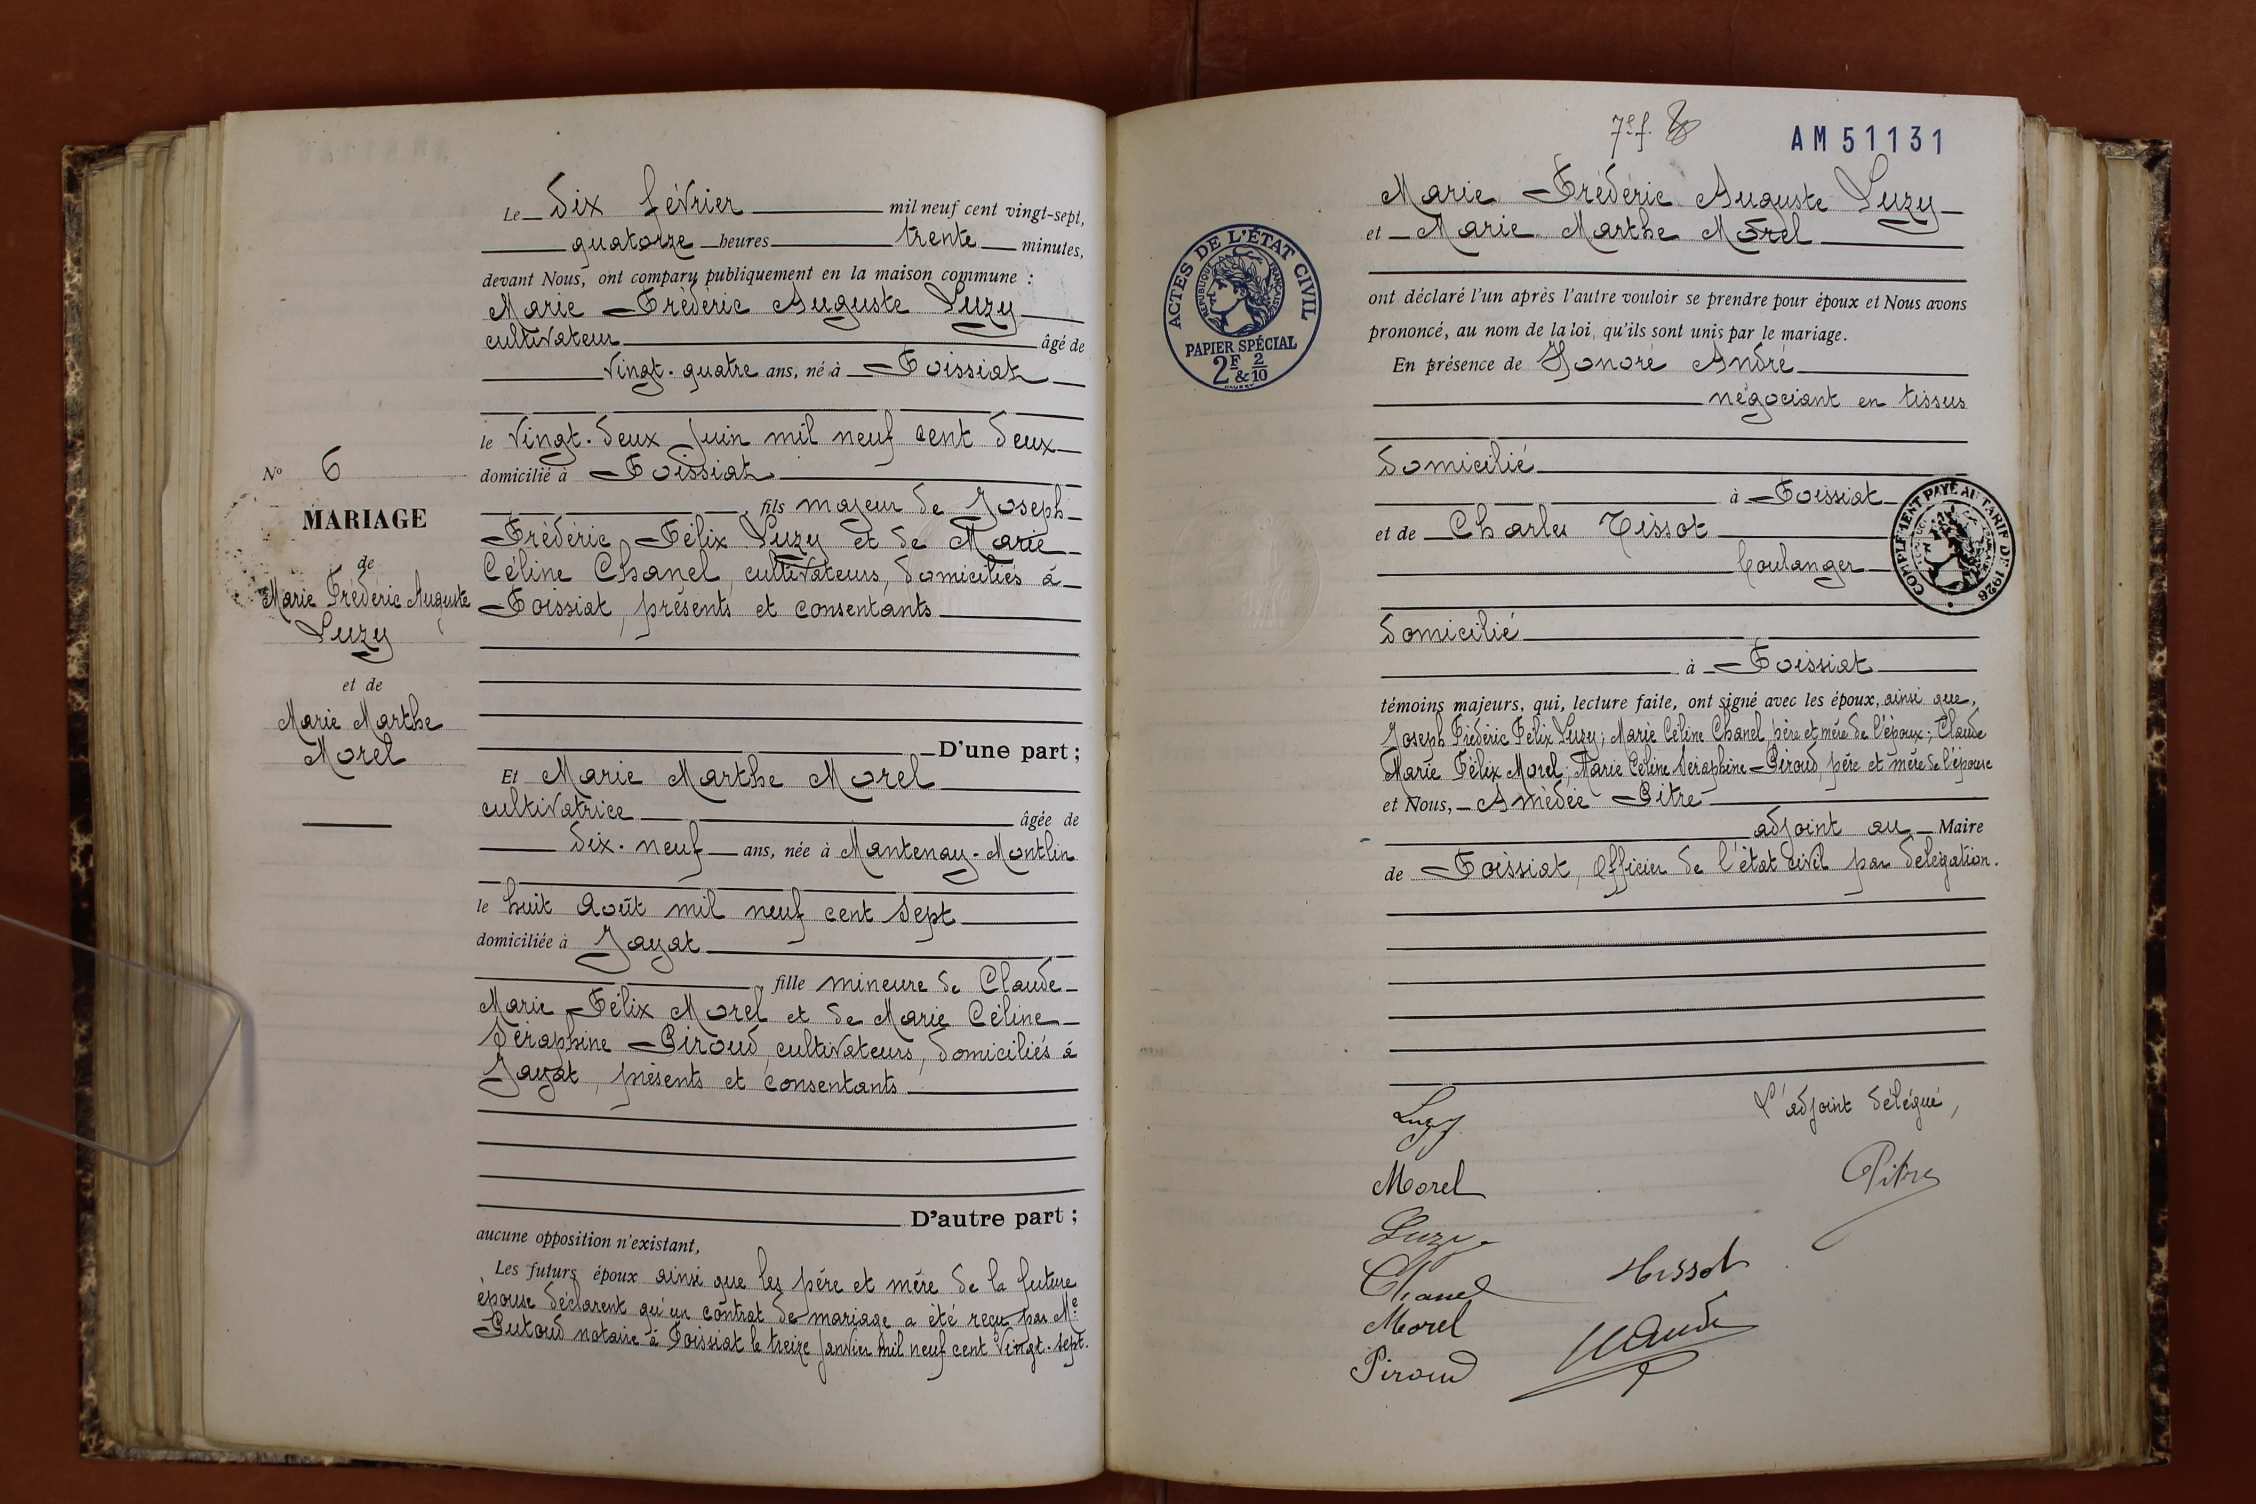 Le dix février mil neuf cent vingt-sept,
quatorze heures trente minutes,
devant Nous, ont comparu publiquement en la maison commune :
Marie Frédéric Auguste Luzy
cultivateur âgé de
vingt-quatre ans, né à Foissiat
le vingt-deux juin mil neuf cent deux
domicilié à Foissiat
fils majeur de Joseph
Frédéric Félix Luzy et de Marie
Céline Chanel, cultivateurs, domiciliés à
Foissiat, présents et consentants
D'une part ;
Et Marie Marthe Morel
cultivatrice âgée de
dix-neuf ans, née à Mantenay-Montlin
le huit août mil neuf cent sept
domiciliée à Jayat
fille mineure de Claude
Marie Félix Morel et de Marie Céline
Séraphine Piroud, cultivateurs, domiciliés à
Jayat, présents et consentants
D'autre part ;
aucune opposition n'existant,
Les futurs époux ainsi que les père et mère de la future
épouse déclarent qu'un contrat de mariage a été reçu par Me
Putoud notaire à Foissiat le treize janvier mil neuf cent vingt-sept.
No 6
MARIAGE
de
Marie Frédéric Auguste
Luzy
et de
Marie Marthe
Morel
7e f.
AM 51131
Marie Frédéric Auguste Luzy
et Marie Marthe Morel
ont déclaré l'un après l'autre vouloir se prendre pour époux et Nous avons
prononcé, au nom de la loi, qu'ils sont unis par le mariage.
En présence de Honoré André
négociant en tissus
domicilié
à Foissiat
et de Charles Tissot
boulanger
domicilié
à Foissiat
témoins majeurs, qui, lecture faite, ont signé avec les époux, ainsi que,
Joseph Frédéric Félix Luzy ; Marie Céline Chanel, père et mère de l'époux ; Claude
Marie Félix Morel ; Marie Céline Séraphine Piroud, père et mère de l'épouse
et Nous, Amédée Pitre
adjoint au Maire
de Foissiat, officier de l'état civil par délégation.
ACTES DE L'ÉTAT CIVIL
RÉPUBLIQUE FRANÇAISE
PAPIER SPÉCIAL
2F & 2/10
COMPLÉMENT PAYÉ AU TARIF DE 1926
Luzy
L'adjoint délégué,
Morel
Pitre
Luzy
Chanel
Tissot
Morel
Piroud